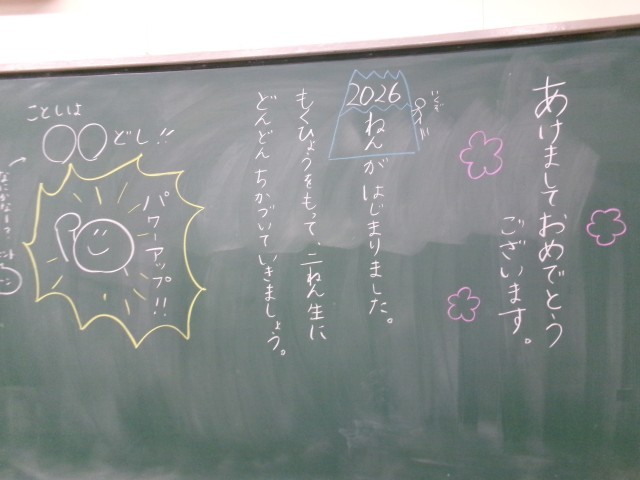 あけましておめでとう
ございます。
2026ねんがはじまりました。
もくひょうをもって、二ねん生に
どんどんちかづいていきましょう。
ことしは
○○どし!!
パワーアップ!!
なにがなーう?